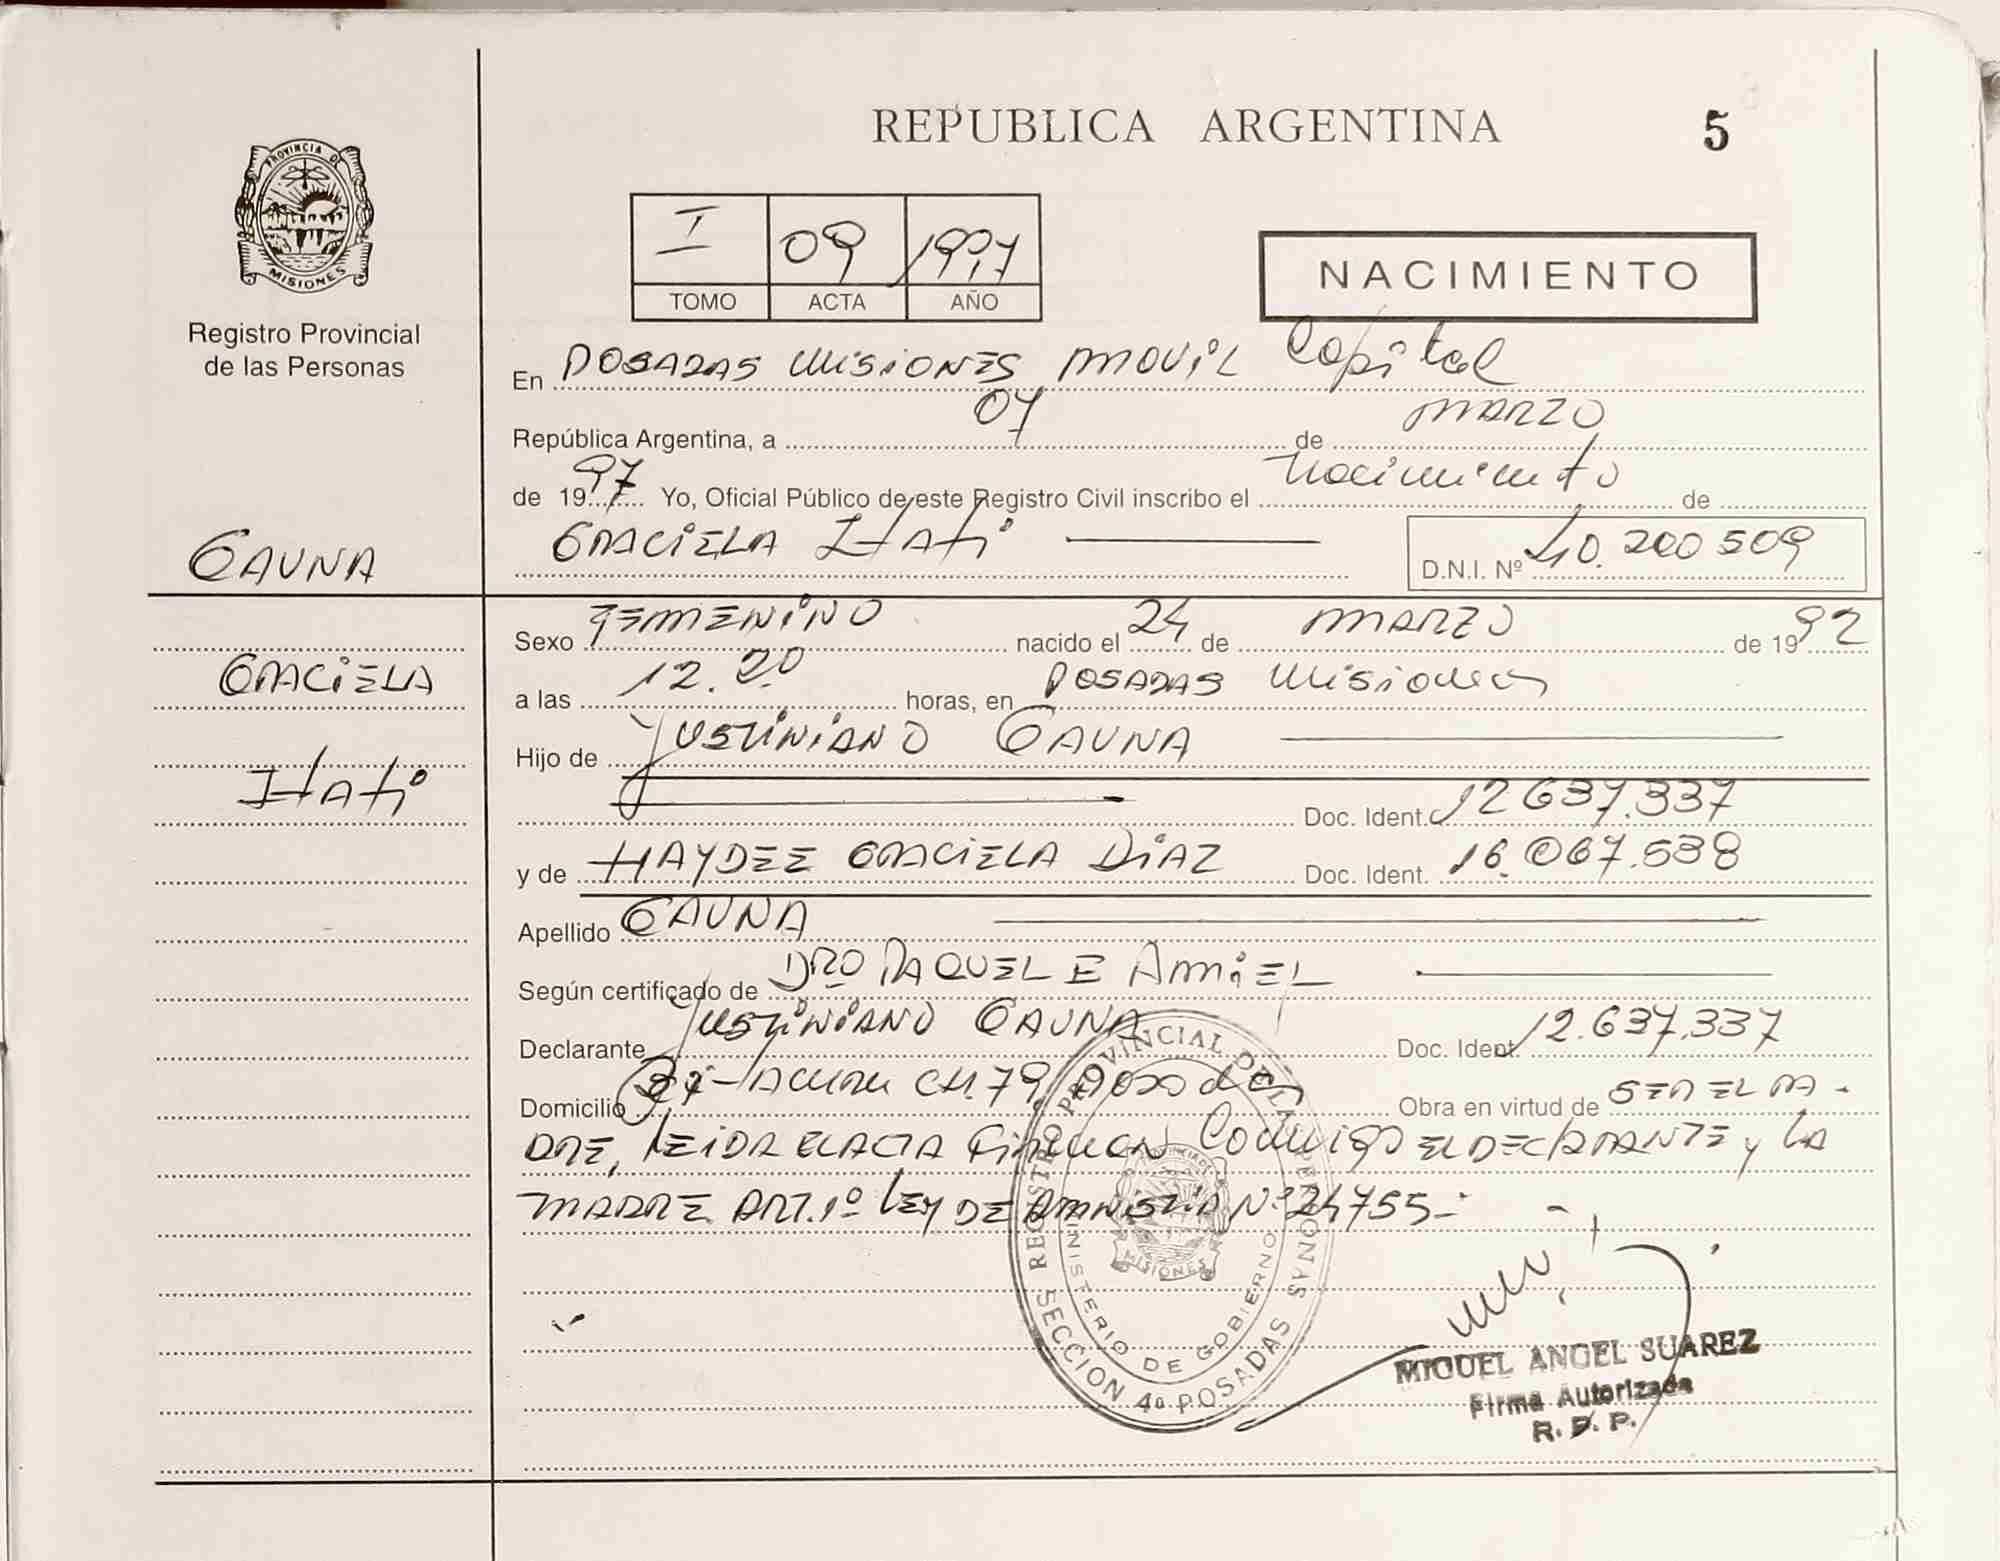 REPUBLICA ARGENTINA
5
PROVINCIA DE
MISIONES
Registro Provincial
de las Personas
I 09 1997
TOMO ACTA AÑO
NACIMIENTO
En POSADAS MISIONES MOVIL Capital
República Argentina, a 07 de MARZO
de 1997 Yo, Oficial Público de este Registro Civil inscribo el Nacimiento de
GAUNA
GRACIELA Itatí
D.N.I. Nº 40.200509
Sexo FEMENINO nacido el 24 de MARZO de 1992
GRACIELA
a las 12.20 horas, en POSADAS Misiones
Hijo de JUSTINIANO GAUNA
Itatí
Doc. Ident. 12637.337
y de HAYDEE GRACIELA DIAZ Doc. Ident. 16.067.538
Apellido GAUNA
Según certificado de DRA RAQUEL E AMIEL
Declarante JUSTINIANO GAUNA Doc. Ident. 12.637.337
Domicilio CH.79 Posadas Obra en virtud de SER EL PA-
DRE, LEIDA EL ACTA Firman Conmigo EL DECLARANTE y LA
MADRE ART.1º LEY DE AMNISTIA Nº 24755-
REGISTRO PROVINCIAL DE LAS PERSONAS
MINISTERIO DE GOBIERNO
MISIONES
SECCION 4a POSADAS
MIGUEL ANGEL SUAREZ
Firma Autorizada
R. P. P.